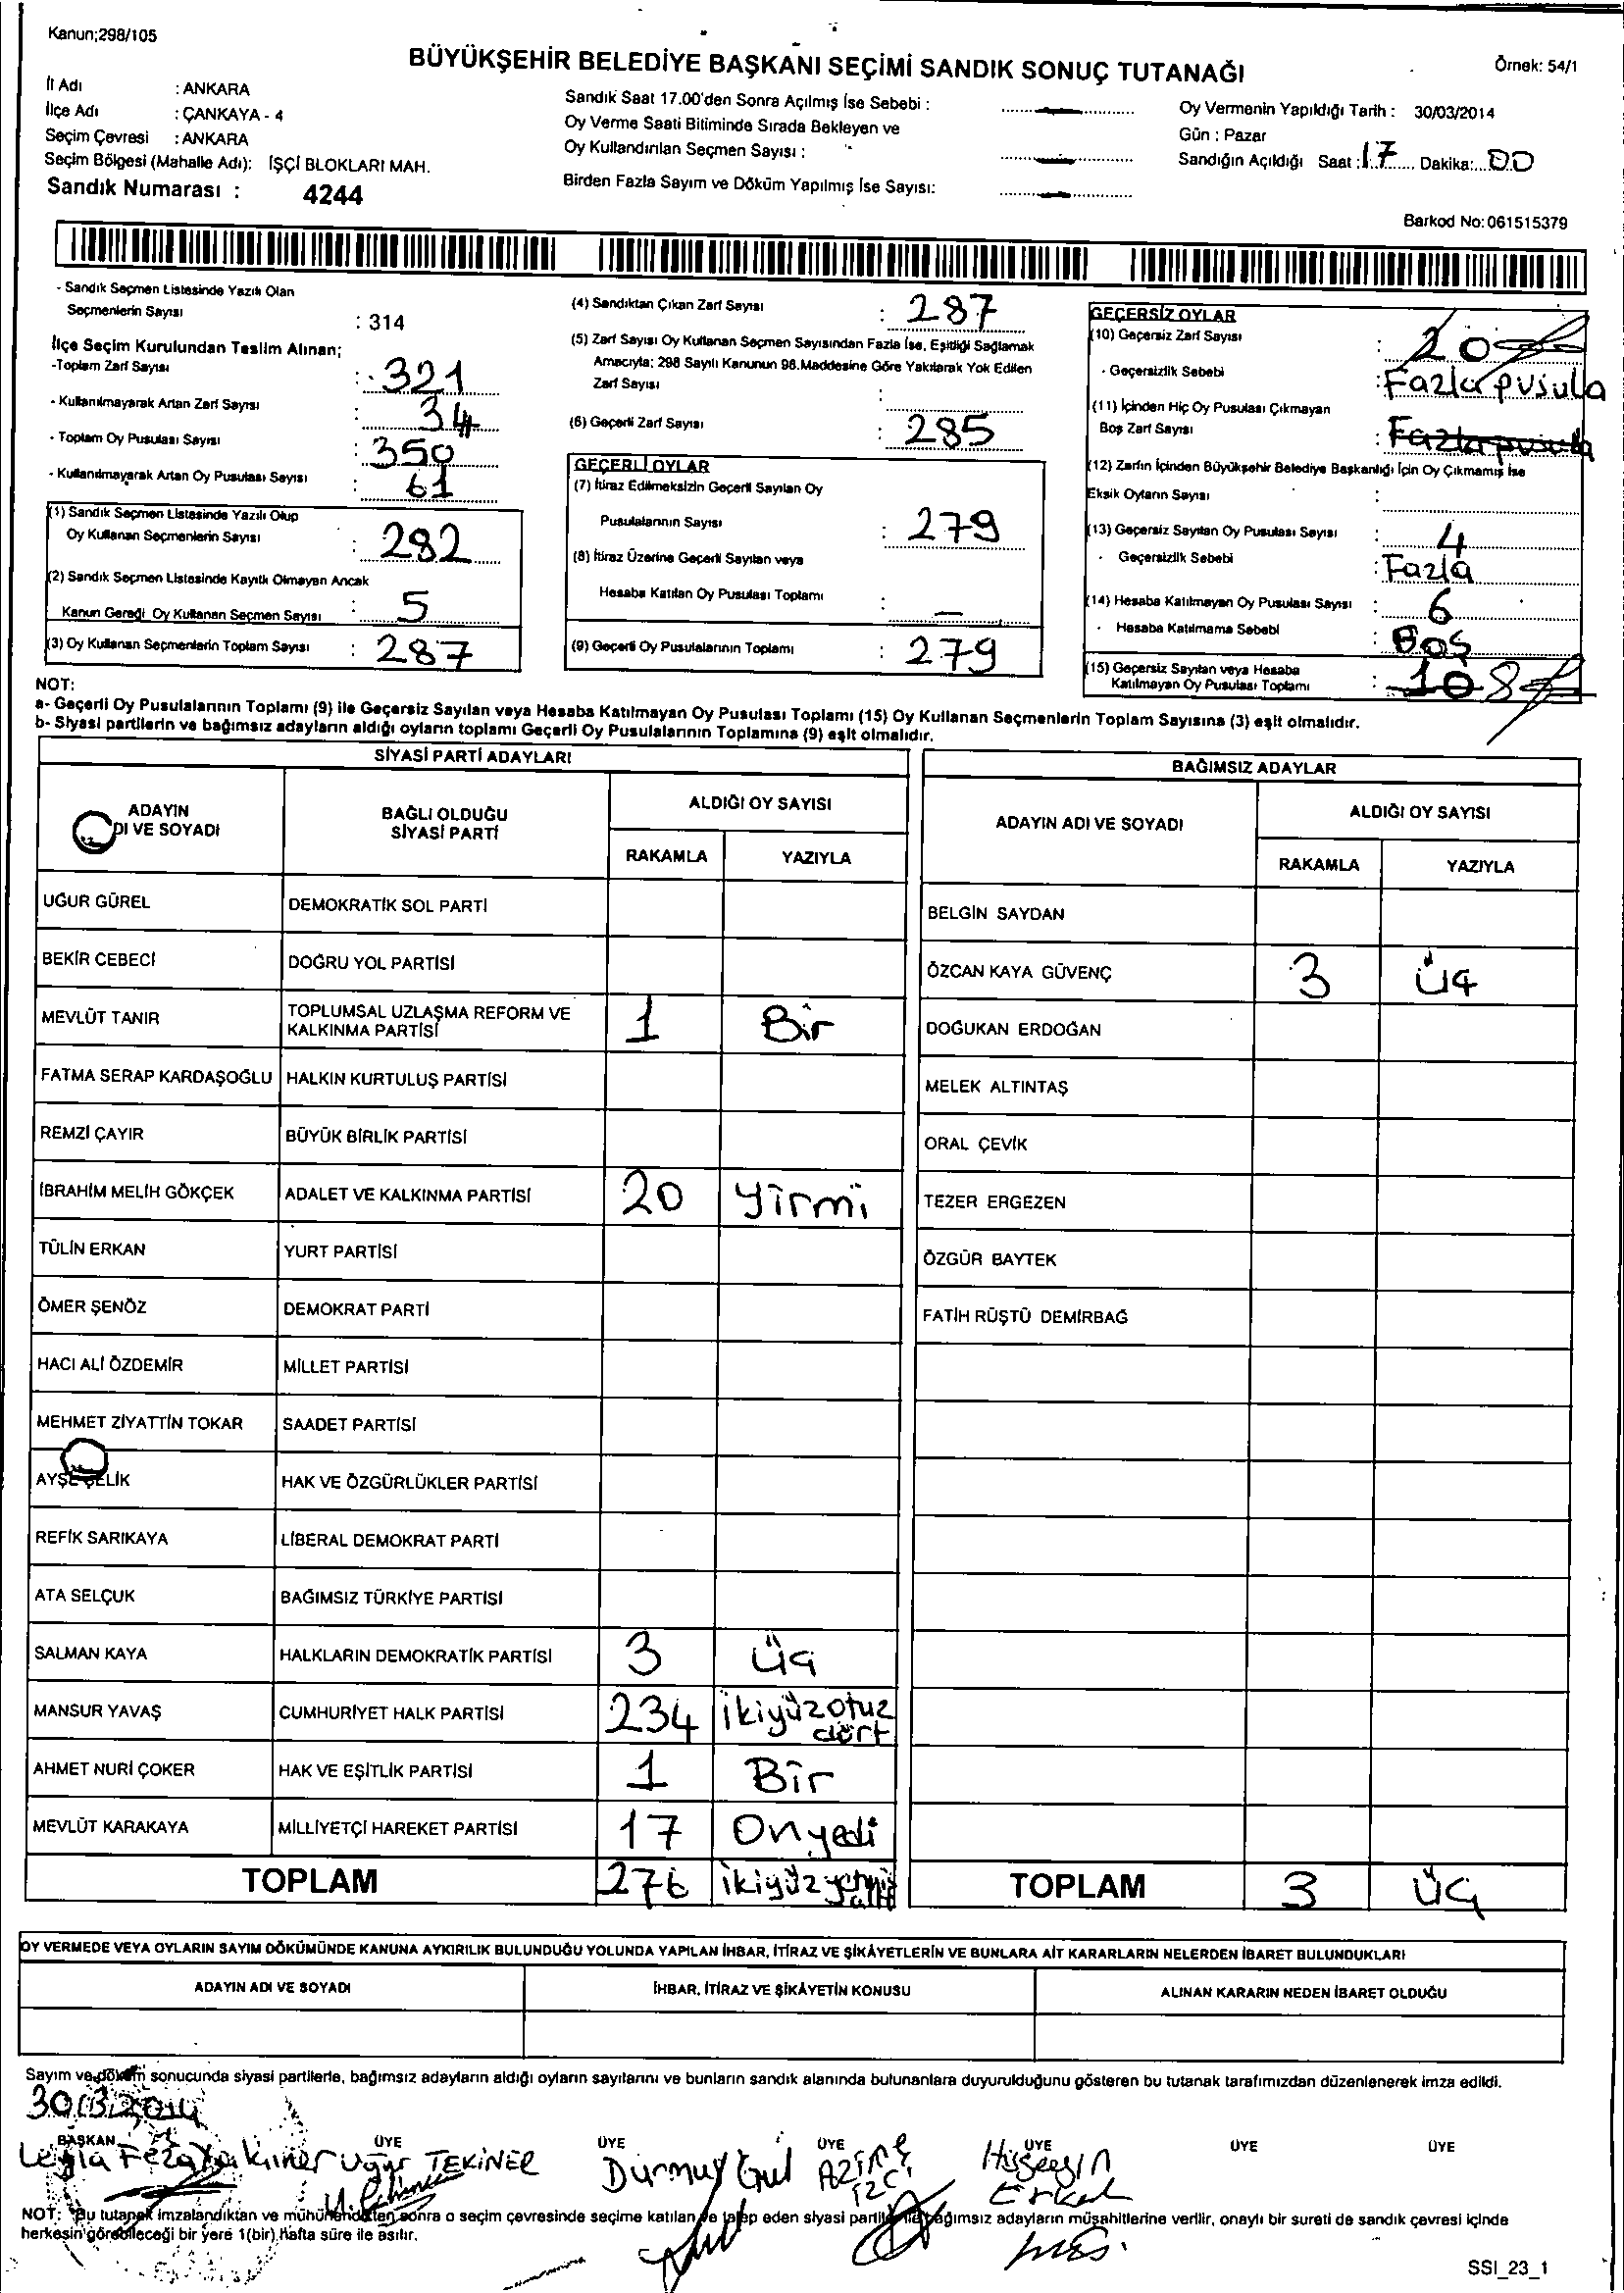 Kanun;298/105
BÜYÜKŞEHİR BELEDİYE BAŞKANI SEÇİMİ SANDIK SONUÇ TUTANAĞI
Örnek: 54/1
İl Adı : ANKARA
İlçe Adı : ÇANKAYA - 4
Seçim Çevresi : ANKARA
Seçim Bölgesi (Mahalle Adı): İŞÇİ BLOKLARI MAH.
Sandık Numarası : 4244
Sandık Saat 17.00'den Sonra Açılmış İse Sebebi :
Oy Verme Saati Bitiminde Sırada Bekleyen ve
Oy Kullandırılan Seçmen Sayısı :
Birden Fazla Sayım ve Döküm Yapılmış İse Sayısı:
Oy Vermenin Yapıldığı Tarih : 30/03/2014
Gün : Pazar
Sandığın Açıldığı Saat : 17 Dakika: 00
Barkod No: 061515379
- Sandık Seçmen Listesinde Yazılı Olan
Seçmenlerin Sayısı : 314
İlçe Seçim Kurulundan Teslim Alınan;
-Toplam Zarf Sayısı : 321
- Kullanılmayarak Artan Zarf Sayısı : 34
- Toplam Oy Pusulası Sayısı : 350
- Kullanılmayarak Artan Oy Pusulası Sayısı : 61
(1) Sandık Seçmen Listesinde Yazılı Olup
Oy Kullanan Seçmenlerin Sayısı : 282
(2) Sandık Seçmen Listesinde Kayıtlı Olmayan Ancak
Kanun Gereği Oy Kullanan Seçmen Sayısı : 5
(3) Oy Kullanan Seçmenlerin Toplam Sayısı : 287
(4) Sandıktan Çıkan Zarf Sayısı : 287
(5) Zarf Sayısı Oy Kullanan Seçmen Sayısından Fazla İse, Eşitliği Sağlamak
Amacıyla; 298 Sayılı Kanunun 98.Maddesine Göre Yakılarak Yok Edilen
Zarf Sayısı :
(6) Geçerli Zarf Sayısı : 285
GEÇERLİ OYLAR
(7) İtiraz Edilmeksizin Geçerli Sayılan Oy
Pusulalarının Sayısı : 279
(8) İtiraz Üzerine Geçerli Sayılan veya
Hesaba Katılan Oy Pusulası Toplamı : -
(9) Geçerli Oy Pusulalarının Toplamı : 279
GEÇERSİZ OYLAR
(10) Geçersiz Zarf Sayısı : 20
- Geçersizlik Sebebi : Fazla pusula
(11) İçinden Hiç Oy Pusulası Çıkmayan
Boş Zarf Sayısı : Fazla pusula
(12) Zarfın İçinden Büyükşehir Belediye Başkanlığı İçin Oy Çıkmamış İse
Eksik Oyların Sayısı :
(13) Geçersiz Sayılan Oy Pusulası Sayısı : 4
- Geçersizlik Sebebi : Fazla
(14) Hesaba Katılmayan Oy Pusulası Sayısı : 6
- Hesaba Katılmama Sebebi : Boş
(15) Geçersiz Sayılan veya Hesaba
Katılmayan Oy Pusulası Toplamı : 10 8
NOT:
a- Geçerli Oy Pusulalarının Toplamı (9) ile Geçersiz Sayılan veya Hesaba Katılmayan Oy Pusulası Toplamı (15) Oy Kullanan Seçmenlerin Toplam Sayısına (3) eşit olmalıdır.
b- Siyasi partilerin ve bağımsız adayların aldığı oyların toplamı Geçerli Oy Pusulalarının Toplamına (9) eşit olmalıdır.
SİYASİ PARTİ ADAYLARI
ADAYIN
DI VE SOYADI
BAĞLI OLDUĞU
SİYASİ PARTİ
ALDIĞI OY SAYISI
RAKAMLA YAZIYLA
UĞUR GÜREL DEMOKRATİK SOL PARTİ
BEKİR CEBECİ DOĞRU YOL PARTİSİ
MEVLÜT TANIR TOPLUMSAL UZLAŞMA REFORM VE
KALKINMA PARTİSİ 1 Bir
FATMA SERAP KARDAŞOĞLU HALKIN KURTULUŞ PARTİSİ
REMZİ ÇAYIR BÜYÜK BİRLİK PARTİSİ
İBRAHİM MELİH GÖKÇEK ADALET VE KALKINMA PARTİSİ 20 Yirmi
TÜLİN ERKAN YURT PARTİSİ
ÖMER ŞENÖZ DEMOKRAT PARTİ
HACI ALİ ÖZDEMİR MİLLET PARTİSİ
MEHMET ZİYATTİN TOKAR SAADET PARTİSİ
AYŞE ÇELİK HAK VE ÖZGÜRLÜKLER PARTİSİ
REFİK SARIKAYA LİBERAL DEMOKRAT PARTİ
ATA SELÇUK BAĞIMSIZ TÜRKİYE PARTİSİ
SALMAN KAYA HALKLARIN DEMOKRATİK PARTİSİ 3 Üç
MANSUR YAVAŞ CUMHURİYET HALK PARTİSİ 234 ikiyüzotuz
dört
AHMET NURİ ÇOKER HAK VE EŞİTLİK PARTİSİ 1 Bir
MEVLÜT KARAKAYA MİLLİYETÇİ HAREKET PARTİSİ 17 Onyedi
TOPLAM 276 ikiyüzyetmiş
altı
BAĞIMSIZ ADAYLAR
ADAYIN ADI VE SOYADI
ALDIĞI OY SAYISI
RAKAMLA YAZIYLA
BELGİN SAYDAN
ÖZCAN KAYA GÜVENÇ 3 Üç
DOĞUKAN ERDOĞAN
MELEK ALTINTAŞ
ORAL ÇEVİK
TEZER ERGEZEN
ÖZGÜR BAYTEK
FATİH RÜŞTÜ DEMİRBAĞ
TOPLAM 3 Üç
OY VERMEDE VEYA OYLARIN SAYIM DÖKÜMÜNDE KANUNA AYKIRILIK BULUNDUĞU YOLUNDA YAPILAN İHBAR, İTİRAZ VE ŞİKÂYETLERİN VE BUNLARA AİT KARARLARIN NELERDEN İBARET BULUNDUKLARI
ADAYIN ADI VE SOYADI İHBAR, İTİRAZ VE ŞİKÂYETİN KONUSU ALINAN KARARIN NEDEN İBARET OLDUĞU
Sayım ve döküm sonucunda siyasi partilerle, bağımsız adayların aldığı oyların sayılarını ve bunların sandık alanında bulunanlara duyurulduğunu gösteren bu tutanak tarafımızdan düzenlenerek imza edildi.
30/3/2014
BAŞKAN ÜYE ÜYE ÜYE ÜYE ÜYE ÜYE
Leyla Uğur TEKİNER Durmuş Gül Hüseyin
Erkal
NOT: Bu tutanak imzalandıktan ve mühürlendikten sonra o seçim çevresinde seçime katılan ve talep eden siyasi partiler ile bağımsız adayların müşahitlerine verilir, onaylı bir sureti de sandık çevresi içinde
herkesin görebileceği bir yere 1(bir) hafta süre ile asılır.
SSI_23_1